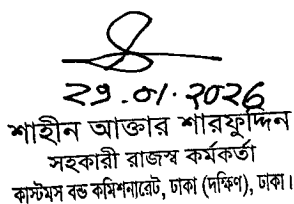 29.01.2026
শাহীন আক্তার শারফুদ্দিন
সহকারী রাজস্ব কর্মকর্তা
কাস্টমস বন্ড কমিশনারেট, ঢাকা (দক্ষিণ), ঢাকা।